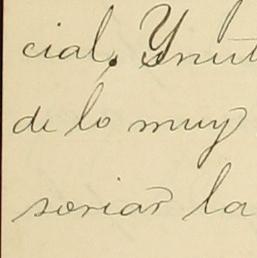 cial. Ynut
de lo muy
soriar la